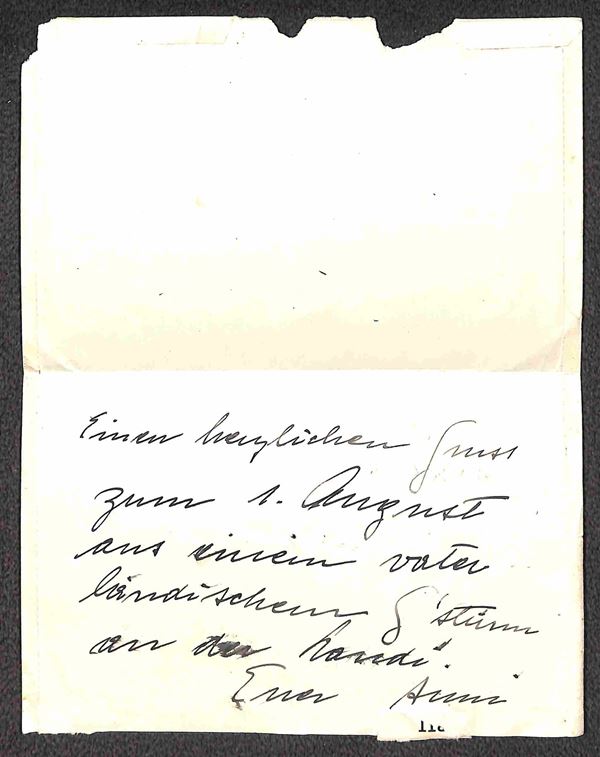 Einen herzlichen Gruss
zum 1. August
aus einem vater
ländischem G'stürm
an der Landi".
Euer